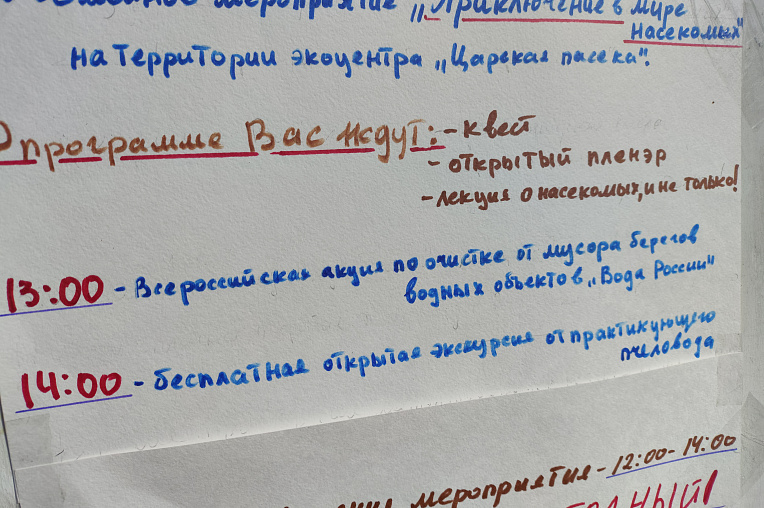 мероприятие „Приключение в мире
насекомых"
на территории экоцентра „Царская пасека".
программе Вас ждут: - квест
- открытый пленэр
- лекция о насекомых, и не только!
13:00 - Всероссийская акция по очистке от мусора берегов
водных объектов „Вода России"
14:00 - бесплатная открытая экскурсия от практикующего
пчеловода
мероприятия - 12:00 - 14:00